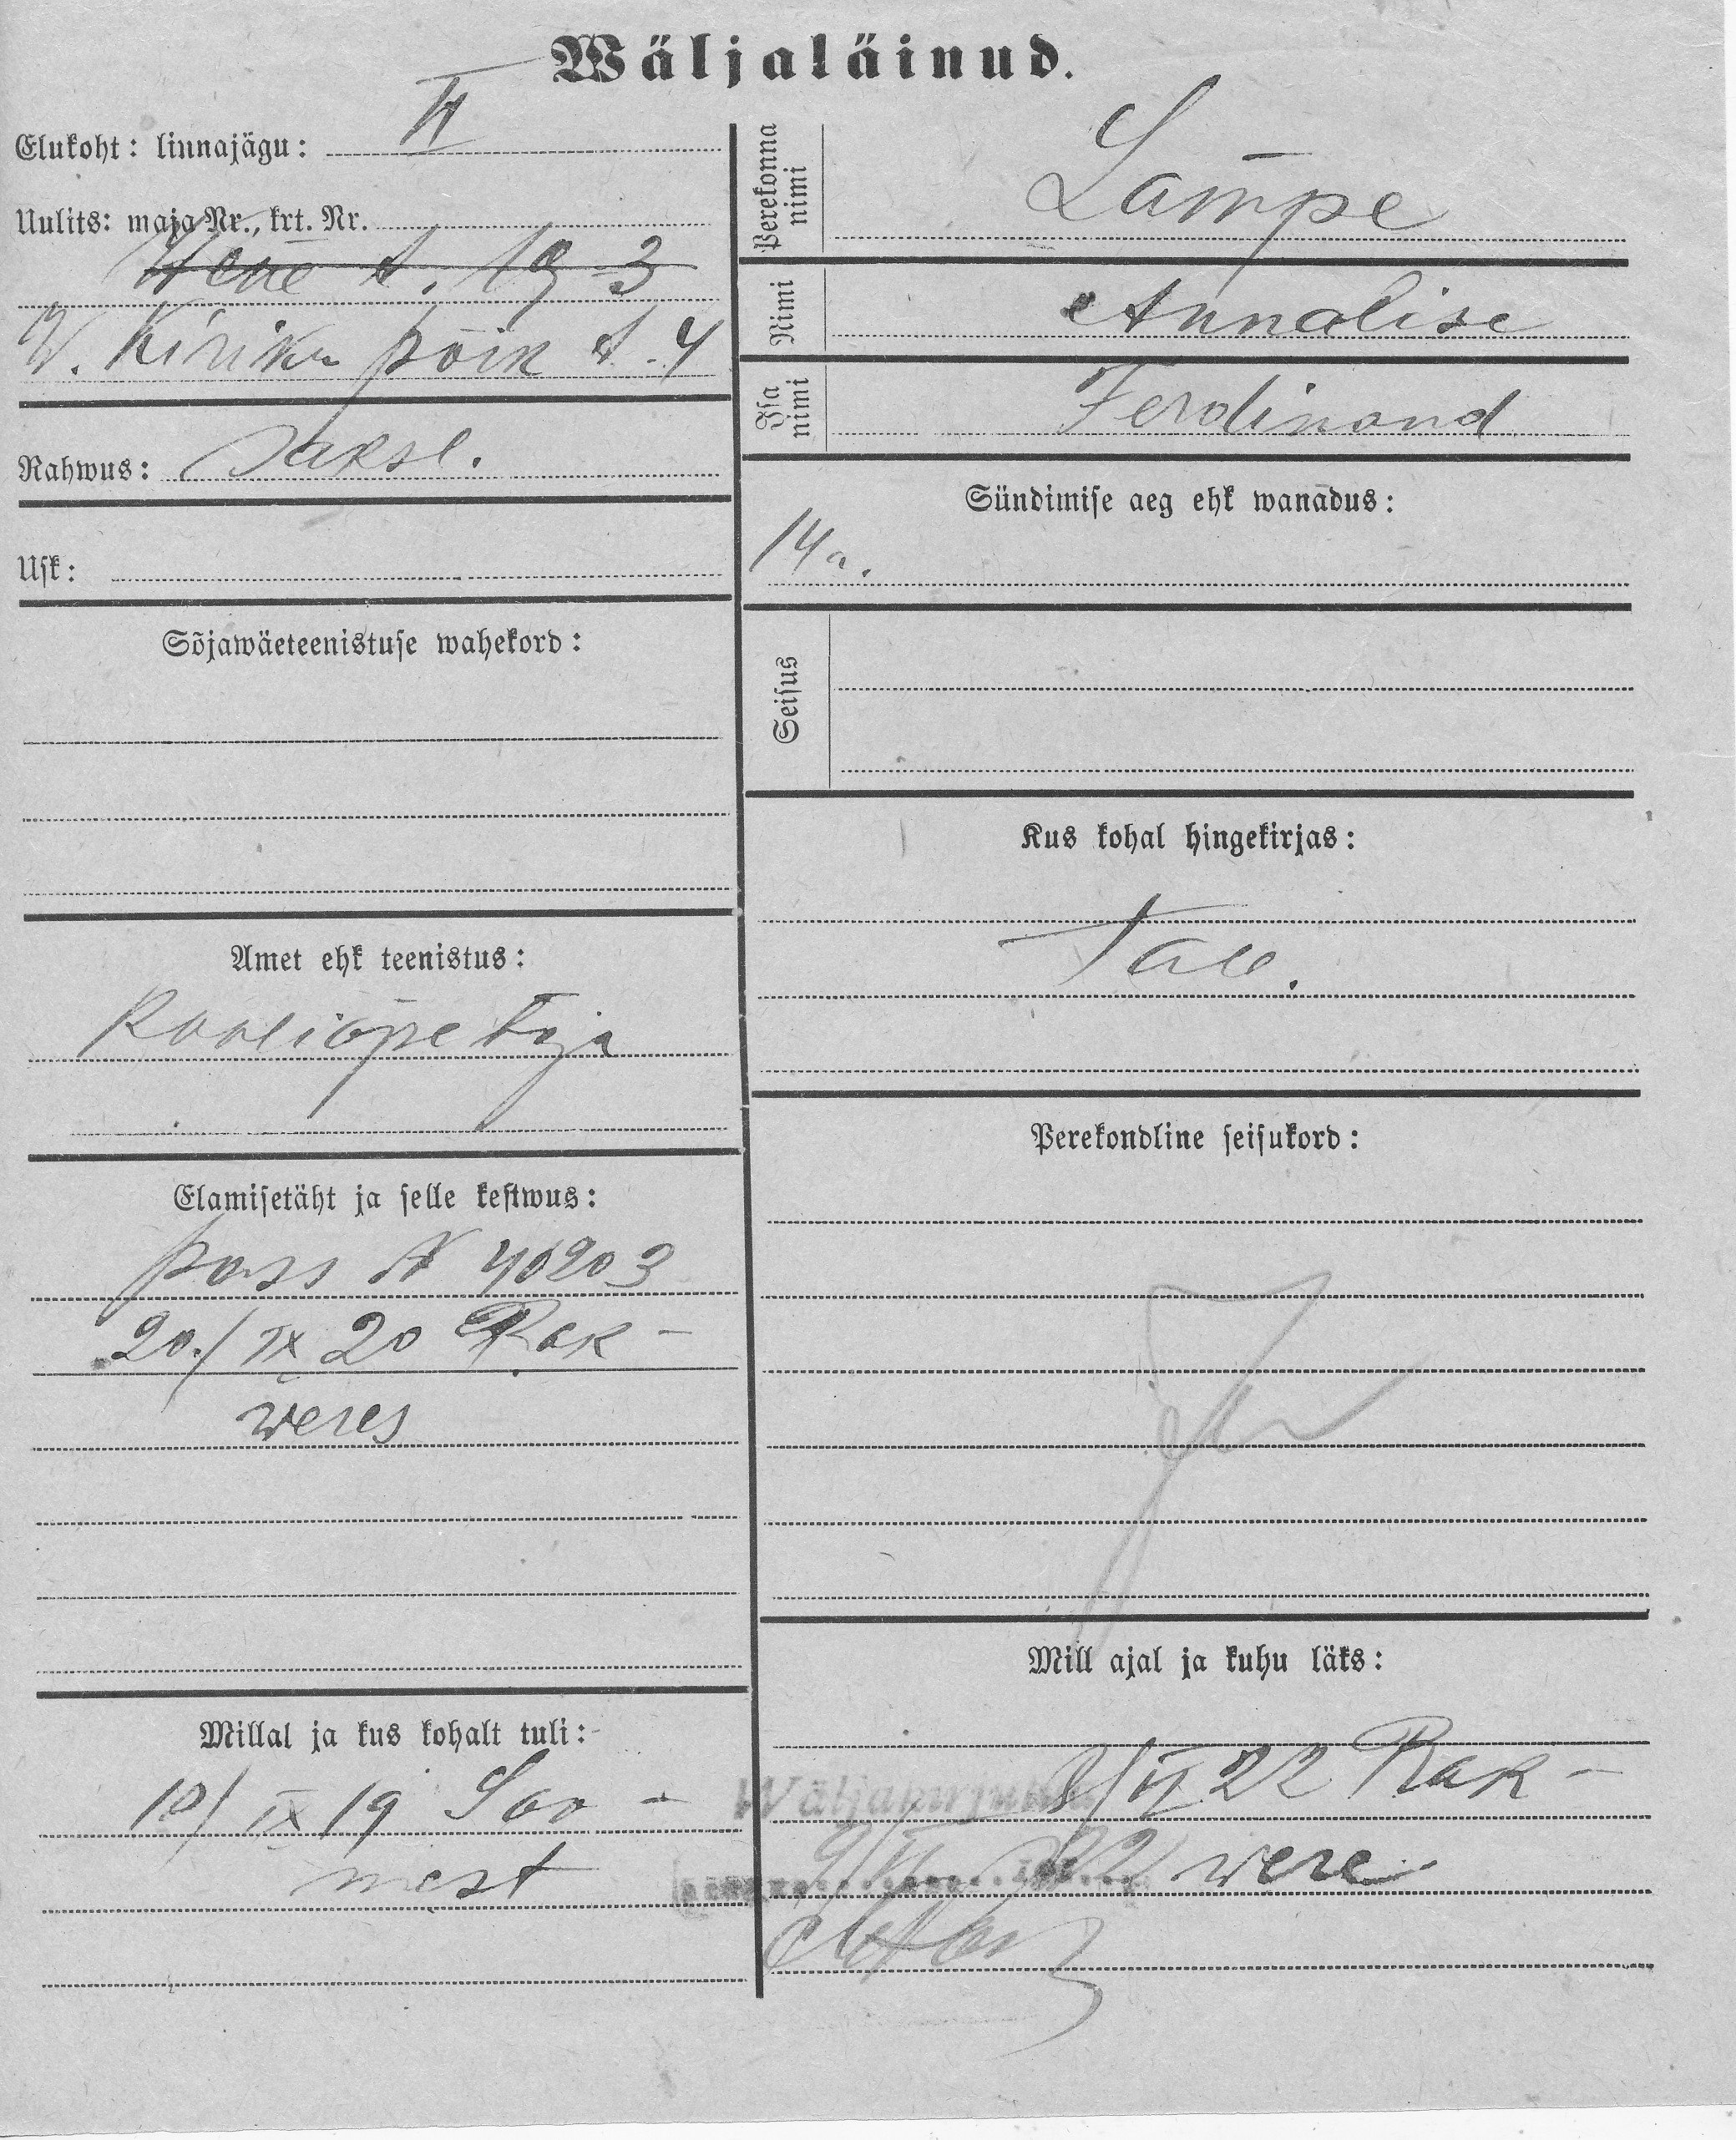 Wäljaläinud.
Elukoht: linnajägu: II
Uulits: maja Nr., krt. Nr.
Wene t. 19 3
W. Kiriku põik t. 4
Rahwus: Saksl.
Usk:
Sõjawäeteenistuse wahekord:
Amet ehk teenistus:
Kooliõpetaja
Elamisetäht ja selle kestwus:
pass N 40203
20./IX 20 Rak-
weres
Millal ja kus kohalt tuli:
10/IX 19 Soo-
mest
Perekonna nimi
Lampe
Nimi
Annalise
Isa nimi
Ferdinand
Sündimise aeg ehk wanadus:
14 a.
Seisus
Kus kohal hingekirjas:
Perekondline seisukord:
Mill ajal ja kuhu läks:
VI 22 Rak-
were